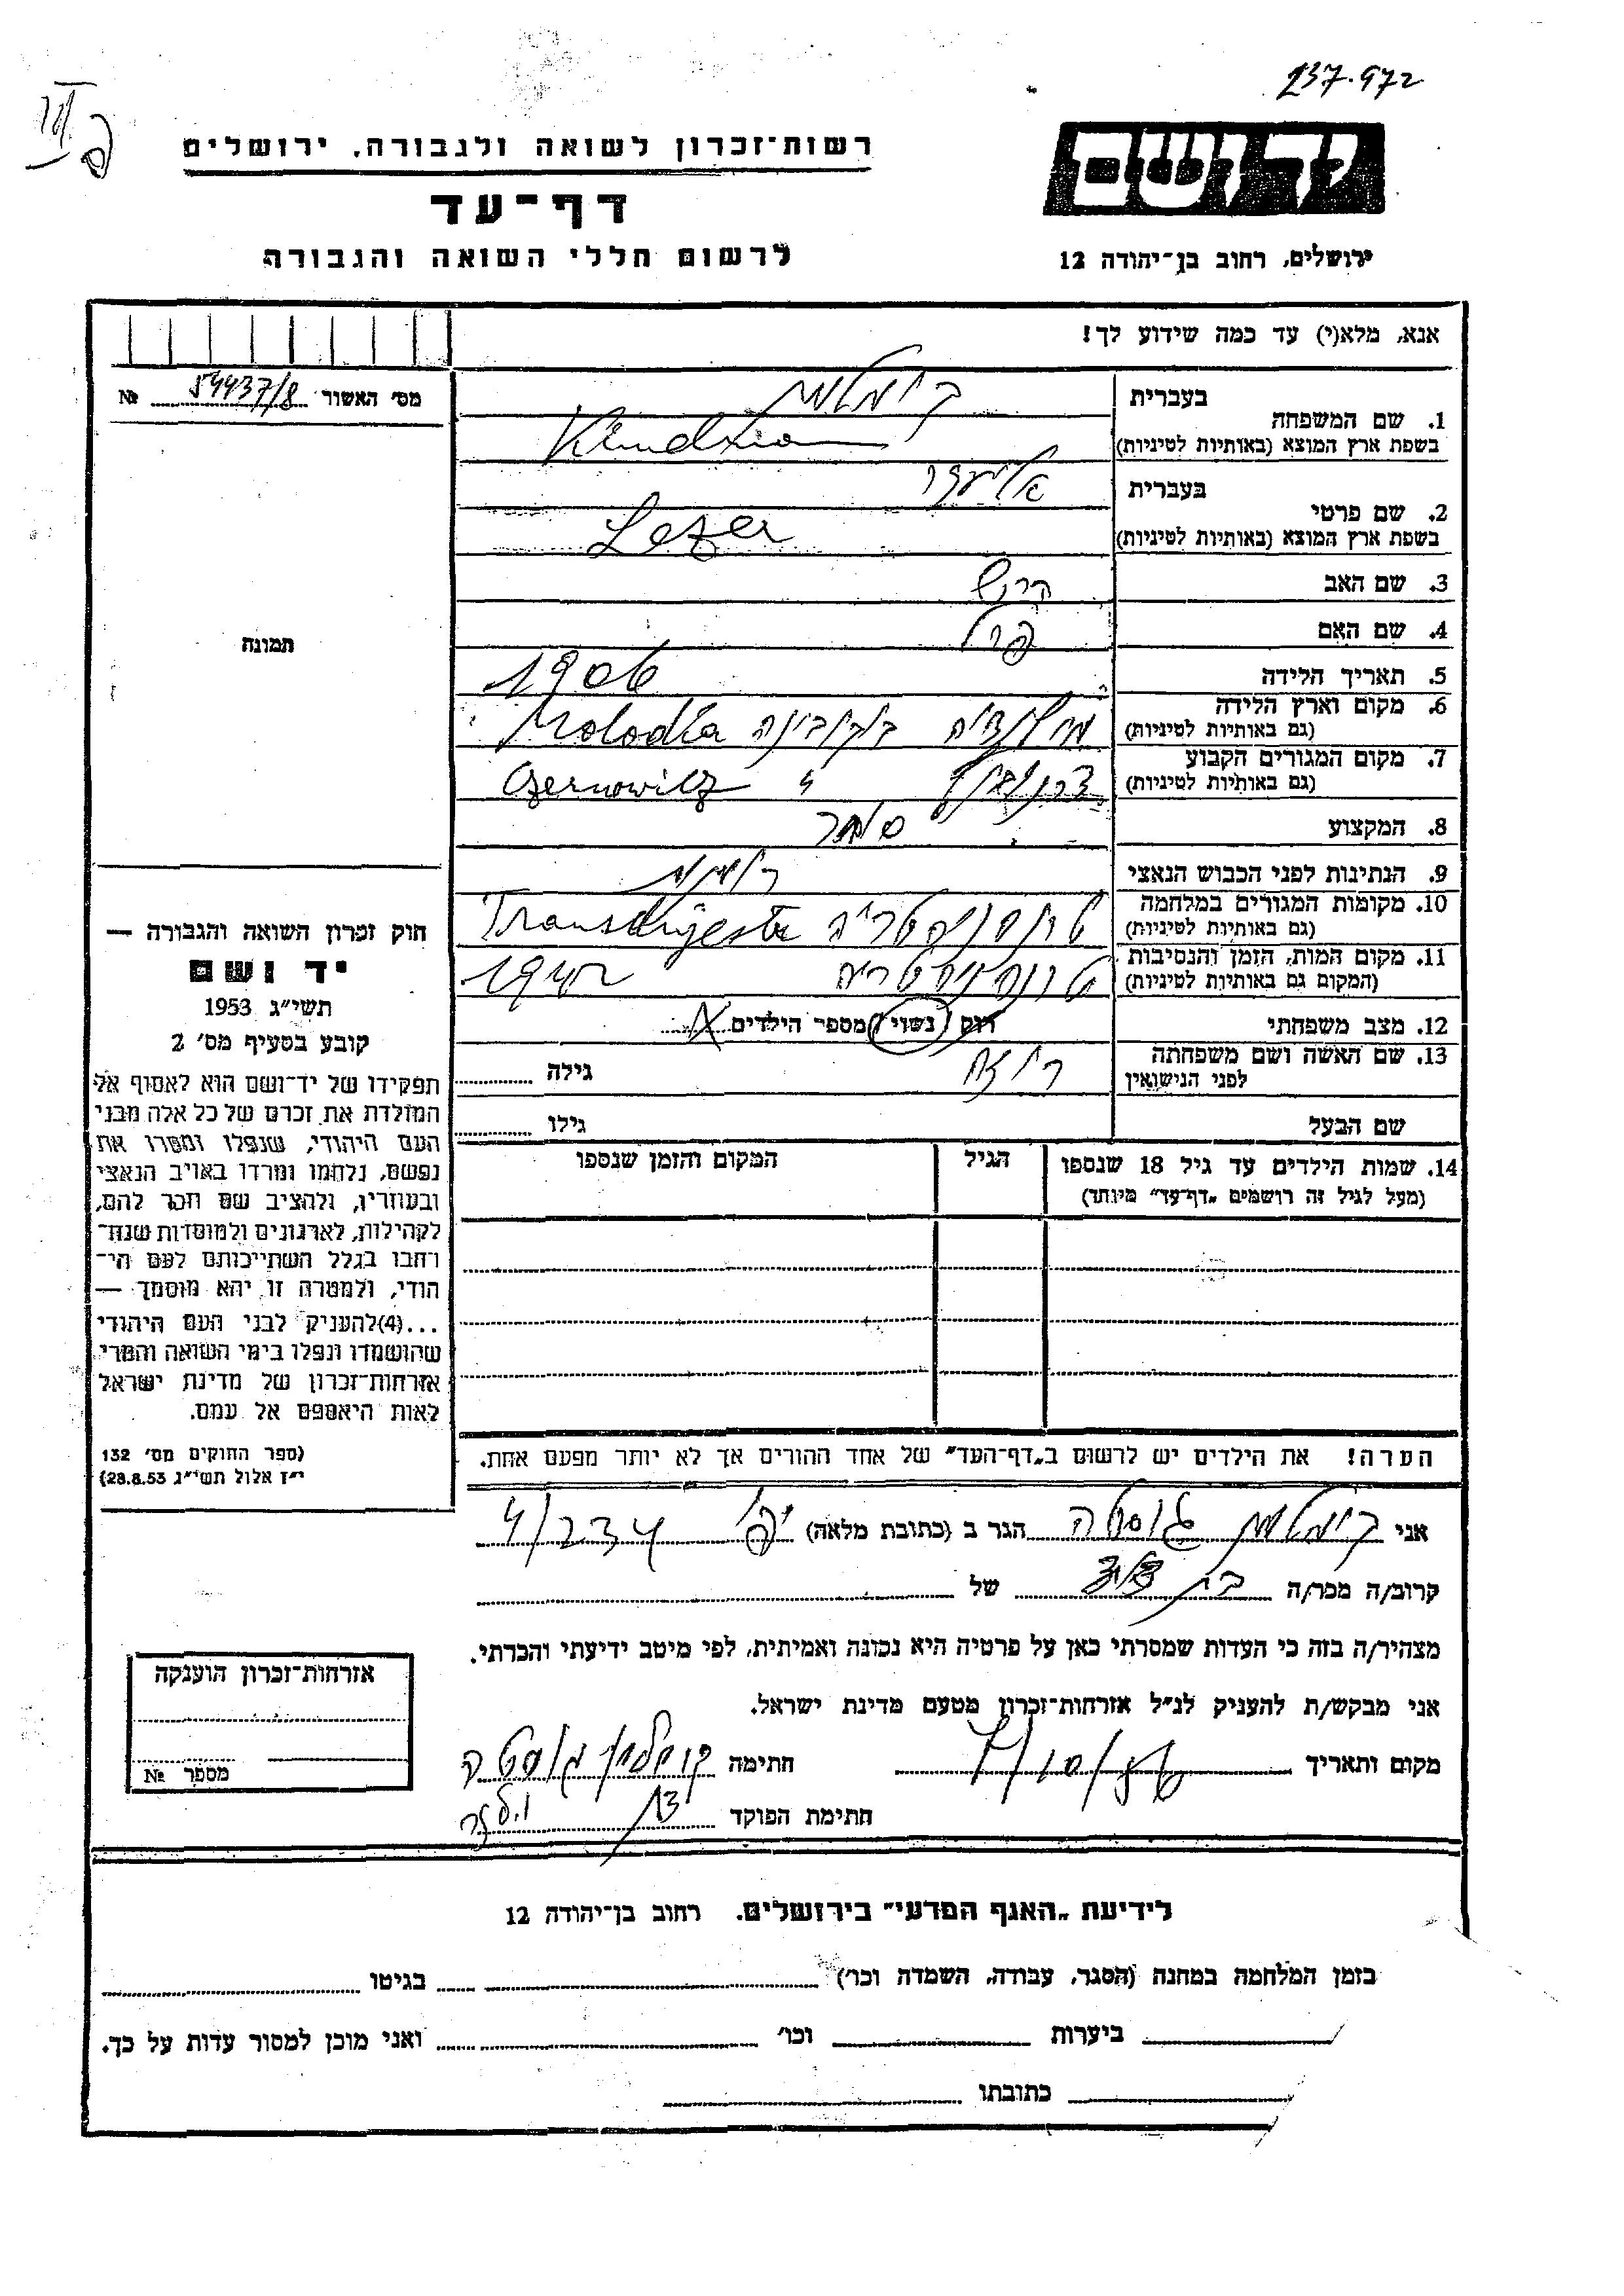 237.972
רשות־זכרון לשואה ולגבורה, ירושלים
יד ושם
דף־עד
לרשום חללי השואה והגבורה
ירושלים, רחוב בן־יהודה 12
אנא, מלא(י) עד כמה שידוע לך!
מס' האשור 54437/8 №
בעברית
1. שם המשפחה
בשפת ארץ המוצא (באותיות לטיניות)
בעברית אליעזר
2. שם פרטי
בשפת ארץ המוצא (באותיות לטיניות) Lezer
3. שם האב הרש
4. שם האם פרל
תמונה
5. תאריך הלידה 1906
6. מקום וארץ הלידה בוקובינה Molodia
(גם באותיות לטיניות)
7. מקום המגורים הקבוע צרנוביץ " Czernowitz
(גם באותיות לטיניות)
8. המקצוע סוחר
9. הנתינות לפני הכבוש הנאצי רומנית
10. מקומות המגורים במלחמה טרנסניסטריה
(גם באותיות לטיניות)
11. מקום המות, הזמן והנסיבות טרנסניסטריה 1942
(המקום גם באותיות לטיניות)
12. מצב משפחתי רווק / נשוי / מספר הילדים
13. שם האשה ושם משפחתה רוזה גילה
לפני הנישואין
שם הבעל גילו
14. שמות הילדים עד גיל 18 שנספו הגיל המקום והזמן שנספו
(מעל לגיל זה רושמים "דף־עד" מיוחד)
חוק זכרון השואה והגבורה —
יד ושם
תשי"ג 1953
קובע בסעיף מס' 2
תפקידו של יד־ושם הוא לאסוף אל
המולדת את זכרם של כל אלה מבני
העם היהודי, שנפלו ומסרו את
נפשם, נלחמו ומרדו באויב הנאצי
ובעוזריו, ולהציב שם וזכר להם,
לקהילות, לארגונים ולמוסדות שנח־
רבו בגלל השתייכותם לעם הי־
הודי, ולמטרה זו יהא מוסמך —
...(4) להעניק לבני העם היהודי
שהושמדו ונפלו בימי השואה והמרי
אזרחות־זכרון של מדינת ישראל
לאות היאספם אל עמם.
(ספר החוקים מס' 132
י"ז אלול תשי"ג 28.8.53)
הערה! את הילדים יש לרשום ב"דף־העד" של אחד ההורים אך לא יותר מפעם אחת.
אני גוסטה הגר ב (כתובת מלאה) יפו 4/234
קרוב/ה מכר/ה של
מצהיר/ה בזה כי העדות שמסרתי כאן על פרטיה היא נכונה ואמיתית, לפי מיטב ידיעתי והכרתי.
אני מבקש/ת להעניק לנ"ל אזרחות־זכרון מטעם מדינת ישראל.
מקום ותאריך חתימה גוסטה
חתימת הפוקד
אזרחות־זכרון הוענקה
מספר №
לידיעת "האגף המדעי" בירושלים. רחוב בן־יהודה 12
בזמן המלחמה במחנה (הסגר, עבודה, השמדה וכו') בגיטו
ביערות וכו' ואני מוכן למסור עדות על כך.
כתובתו